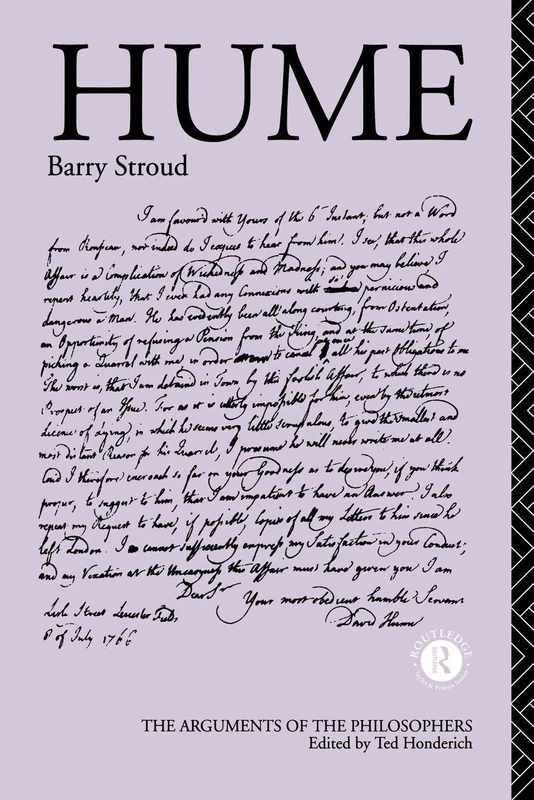 HUME
Barry Stroud
I am favour'd with Yours of the 6 Instant; but not a Word
from Rousseau, nor indeed do I expect to hear from him. I see, that this whole
Affair is a Complication of Wickedness and Madness; and you may believe I
repent heartily, that I ever had any Connexions with so pernicious and
dangerous a Man. He has evidently been all along courting, from Ostentation,
an Opportunity of refusing a Pension from the King, and at the same time, of
picking a Quarrel with me, in order to cancel at once all his past Obligations to me
The worst is, that I am detain'd in Town by this foolish Affair, to which there is no
Prospect of an Issue. For as it is utterly impossible for him, even by the utmost
licence of lying, in which he seems very little scrupulous, to give the smallest and
most distant Reason for his Quarrel, I presume he will never write me at all.
Can I therefore encroach so far on your Goodness as to desire you, if you think
proper, to suggest to him, that I am impatient to have an Answer. I also
repeat my Request to have, if possible, Copies of all my Letters to him since he
left London. I cannot sufficiently express my Satisfaction in your Conduct;
and my Vexation at the Uneasyness the Affair must have given you I am
Dear Sir
Your most obedient humble Servant
Lisle Street Leicester Fields
David Hume
8 of July 1766
ROUTLEDGE
Taylor & Francis Group
THE ARGUMENTS OF THE PHILOSOPHERS
Edited by Ted Honderich